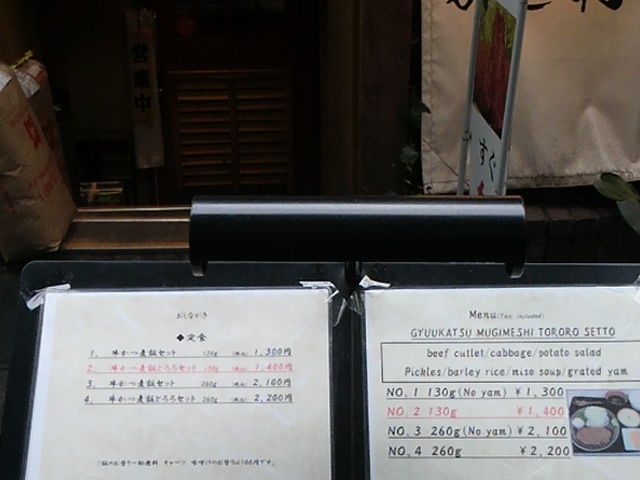 営業中
すぐ
おしながき
◆定食
1. 牛かつ麦飯セット 130g (税込) 1,300円
2. 牛かつ麦飯とろろセット 130g (税込) 1,400円
3. 牛かつ麦飯セット 260g (税込) 2,100円
4. 牛かつ麦飯とろろセット 260g (税込) 2,200円
Menu(Tax included)
GYUUKATSU MUGIMESHI TORORO SETTO
beef cutlet/cabbage/potato salad
Pickles/barley rice/miso soup/grated yam
NO. 1 130g(No yam) ¥1,300
NO. 2 130g ¥1,400
NO. 3 260g(No yam) ¥2,100
NO. 4 260g ¥2,200